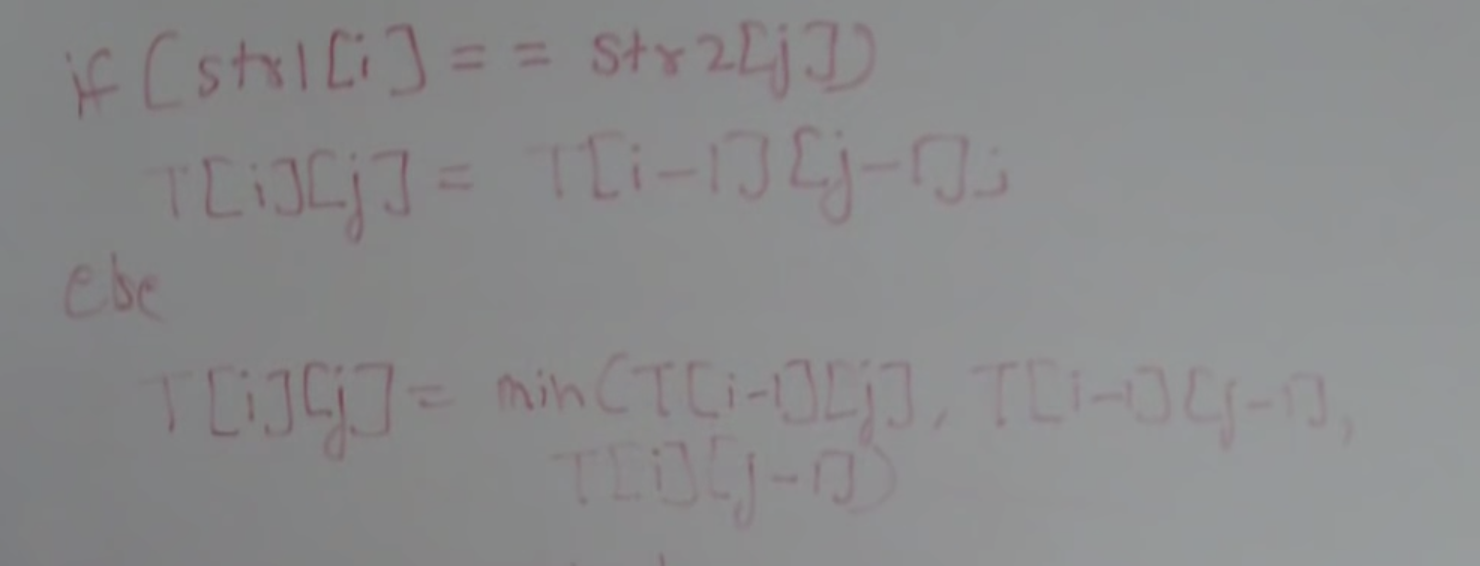 if (str1[i] == str2[j])
T[i][j] = T[i-1][j-1];
else
T[i][j] = min(T[i-1][j], T[i-1][j-1],
T[i][j-1])